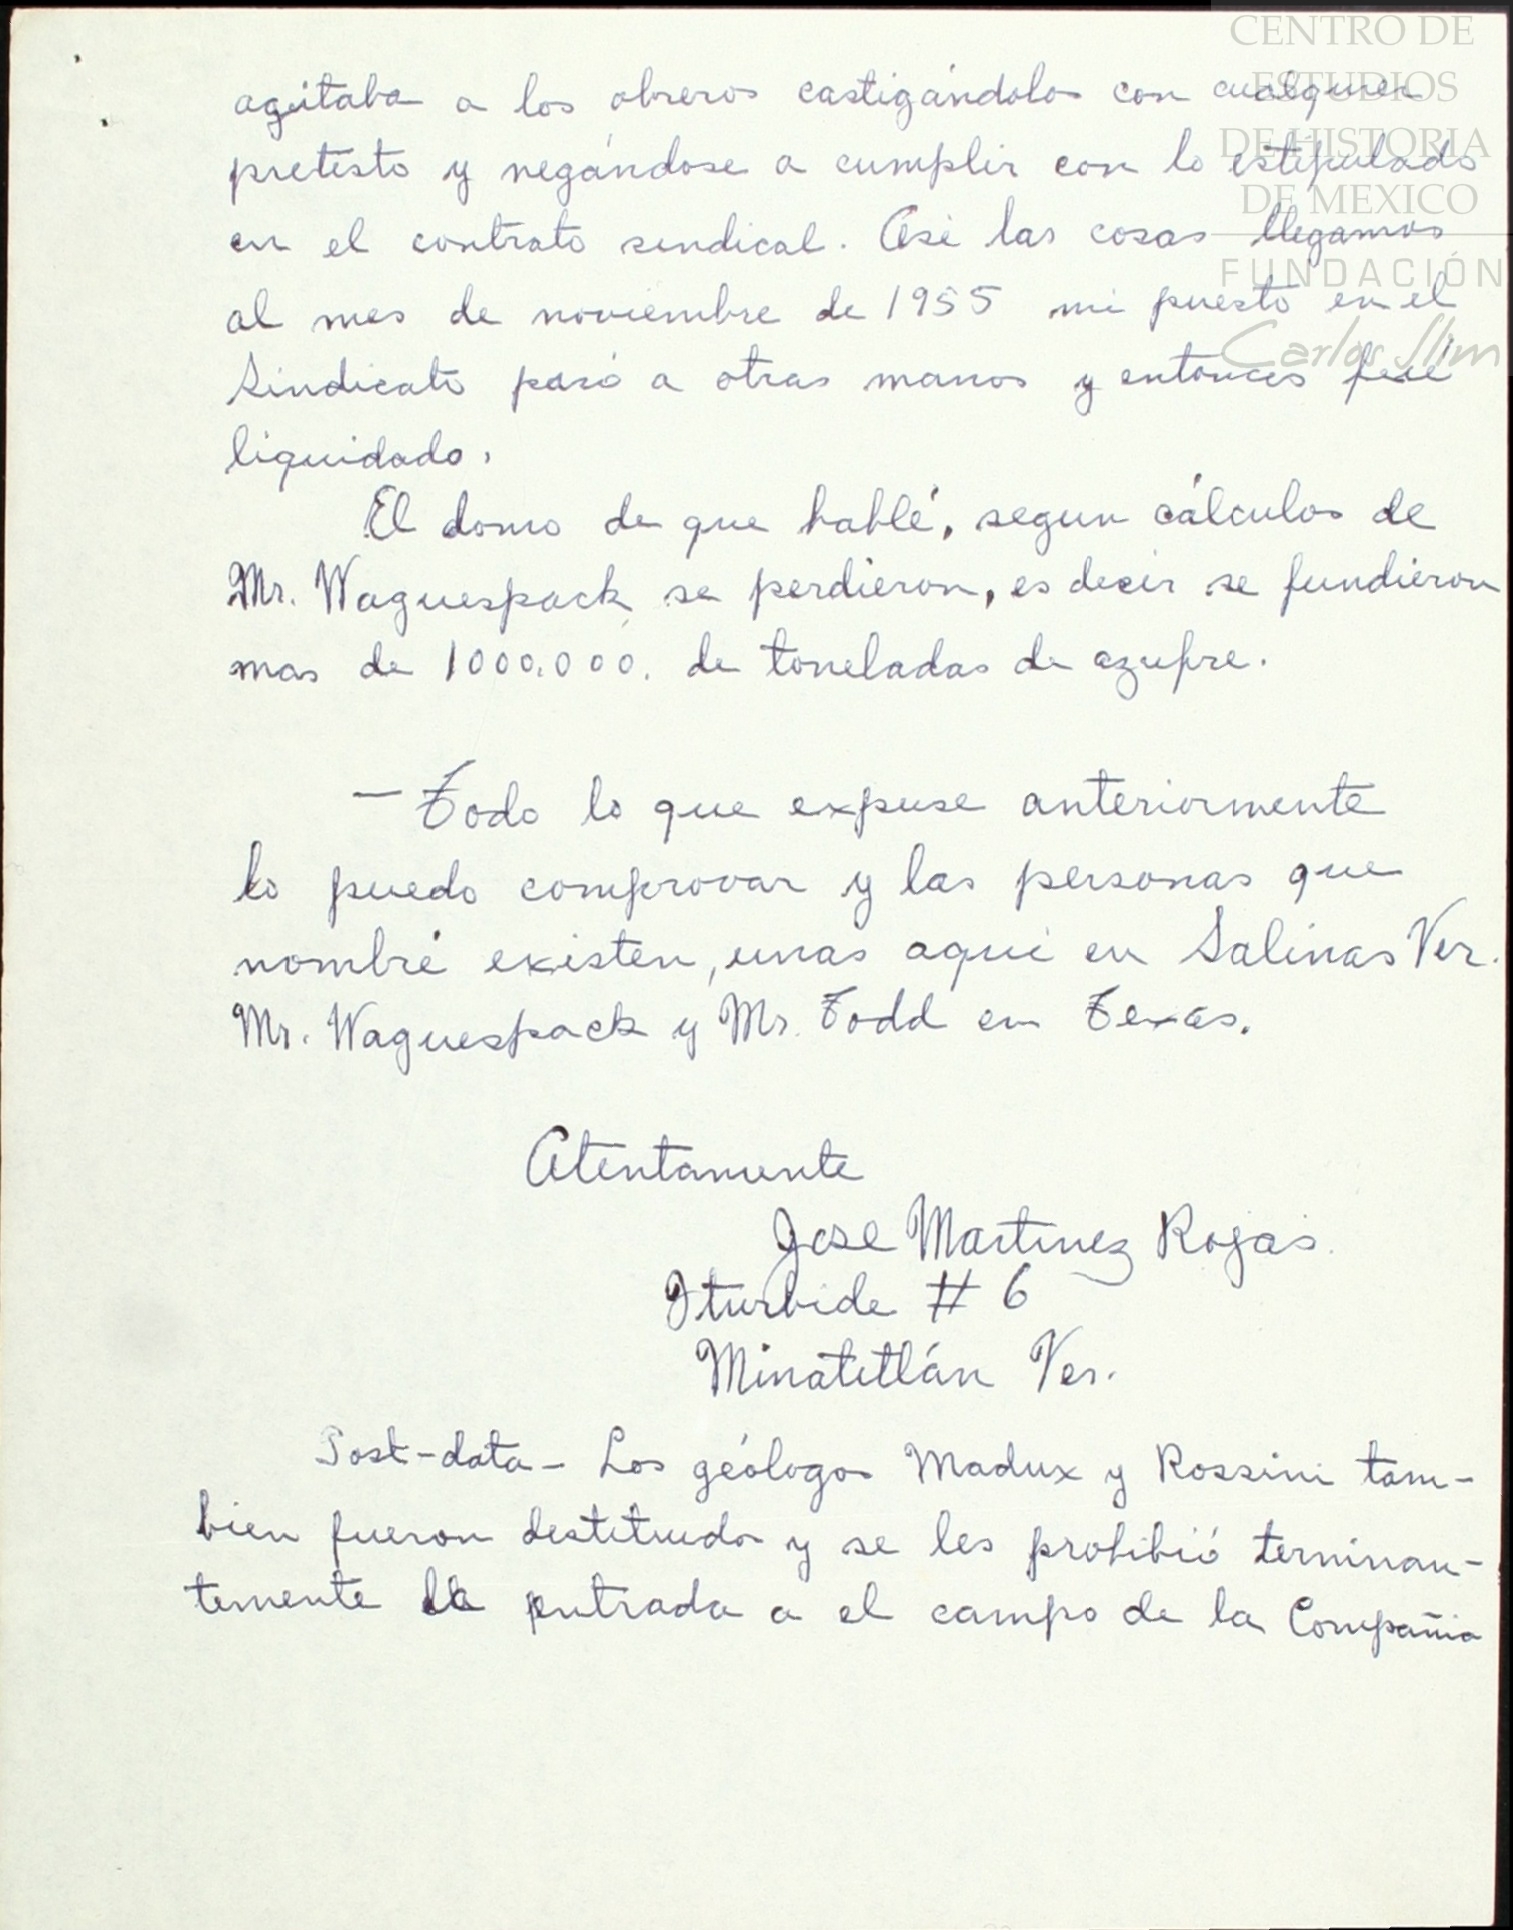 CENTRO DE
ESTUDIOS
DE HISTORIA
DE MEXICO
FUNDACIÓN
Carlos Slim
agitaba a los obreros castigándolos con cualquier
pretesto y negándose a cumplir con lo estipulado
en el contrato sindical. Asi las cosas llegamos
al mes de noviembre de 1955 mi puesto en el
Sindicato pasó a otras manos y entonces fué
liquidado.
El domo de que hablé, segun cálculos de
Mr. Waguespack se perdieron, es decir se fundieron
mas de 1000.000. de toneladas de azufre.
— Todo lo que expuse anteriormente
lo puedo comprovar y las personas que
nombré existen, unas aqui en Salinas Ver.
Mr. Waguespack y Mr. Todd en Texas.
Atentamente
Jose Martinez Rojas.
Iturbide # 6
Minatitlán Ver.
Post-data - Los geólogos Madux y Rossini tam-
bien fueron destituidos y se les prohibió terminan-
temente la entrada a el campo de la Compañia